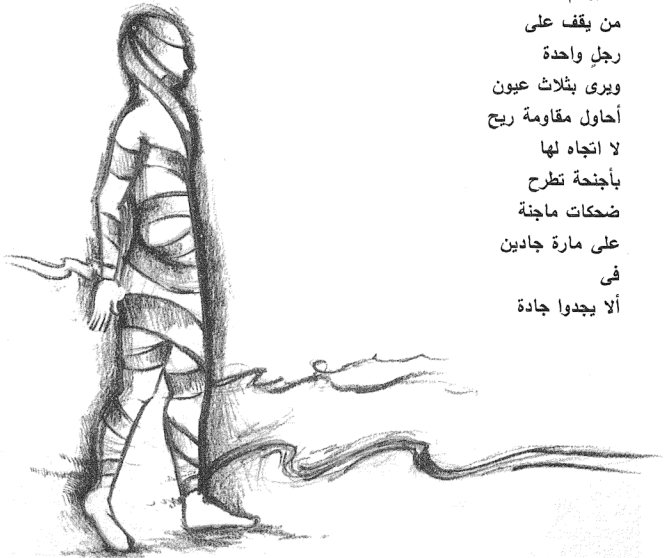 من يقف على
رجلٍ واحدة
ويرى بثلاث عيون
أحاول مقاومة ريح
لا اتجاه لها
بأجنحة تطرح
ضحكات ماجنة
على مارة جادين
فى
ألا يجدوا جادة